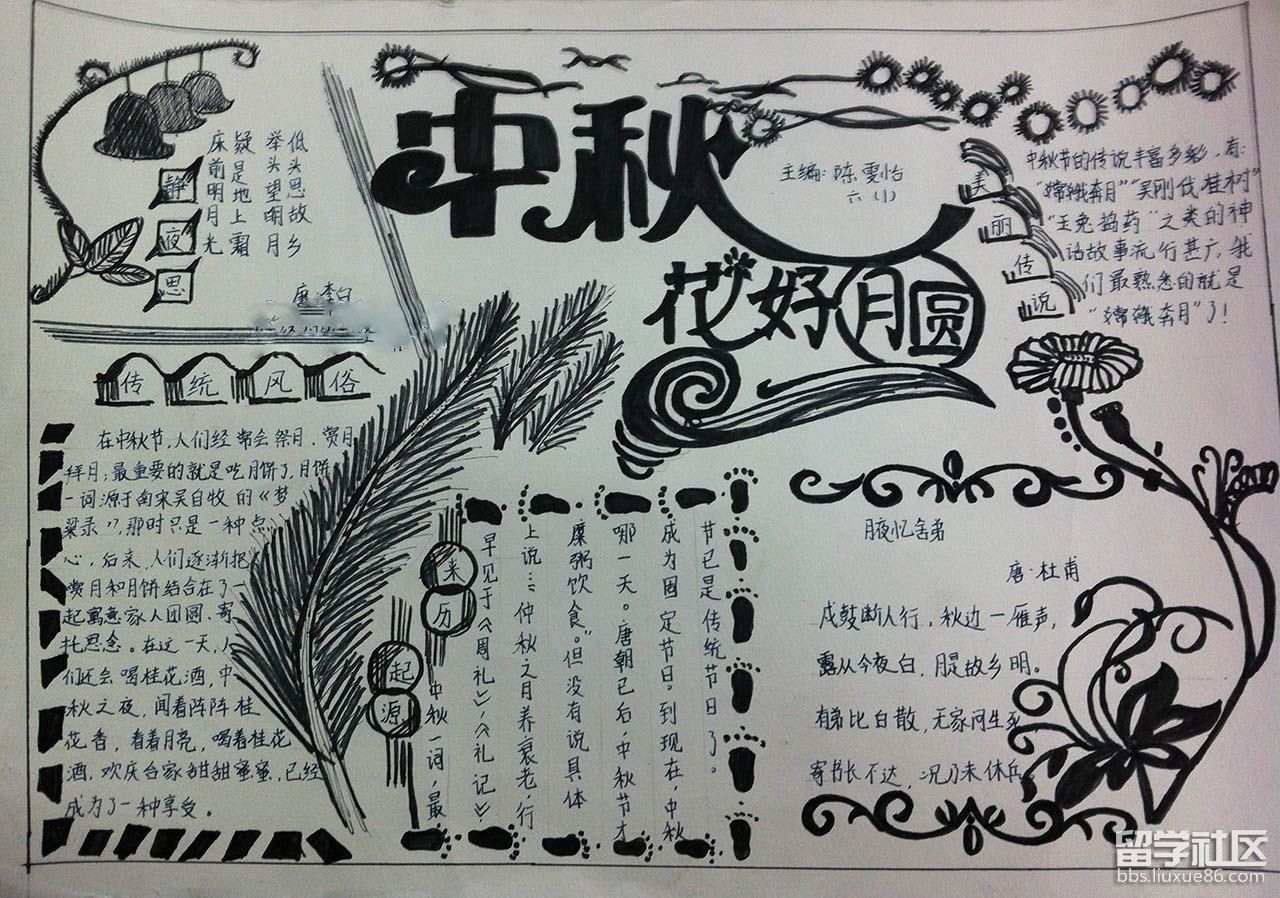 中秋
主编:陈雯怡
六(1)
花好月圆
静夜思
床前明月光
疑是地上霜
举头望明月
低头思故乡
唐·李白
美丽传说
中秋节的传说丰富多彩,有:
“嫦娥奔月”“吴刚伐桂树”
“玉兔捣药”之类的神
话故事流行甚广,我
们最熟悉的就是
“嫦娥奔月”了!
传统风俗
在中秋节,人们经常会祭月、赏月
拜月;最重要的就是吃月饼了,月饼
一词源于南宋吴自牧的《梦
粱录》,那时只是一种点
心,后来,人们逐渐把
赏月和月饼结合在了一
起寓意家人团圆、寄
托思念。在这一天,人
们还会喝桂花酒,中
秋之夜,闻着阵阵桂
花香,看着月亮,喝着桂花
酒,欢庆合家甜甜蜜蜜,已经
成为了一种享受。
起源
来历
中秋一词,最
早见于《周礼》,《礼记》
上说:“仲秋之月养衰老,行
糜粥饮食。”但没有说具体
哪一天。唐朝已后,中秋节才
成为固定节日。到现在,中秋
节已是传统节日了。
月夜忆舍弟
唐·杜甫
戍鼓断人行,秋边一雁声,
露从今夜白,月是故乡明。
有弟皆散,无家问生死
寄书长不达,况乃未休兵。
留学社区
bbs.liuxue86.com